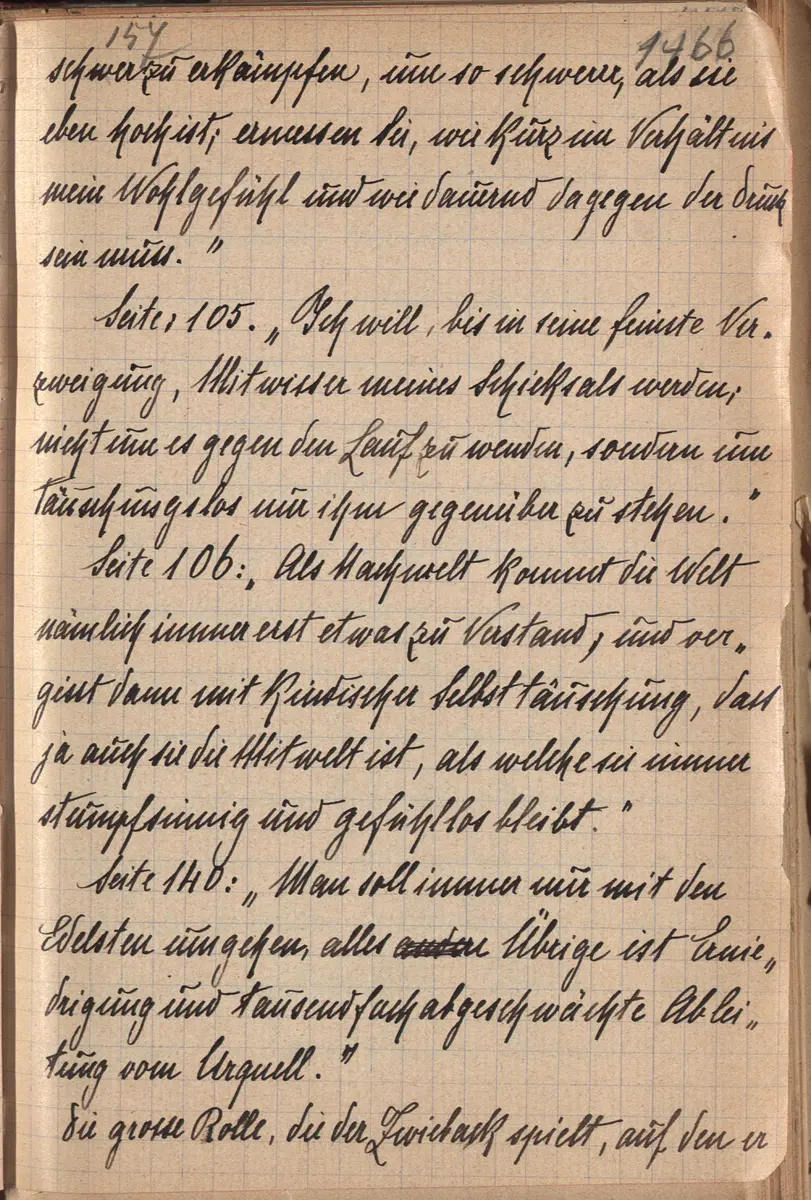 157 1466
schwer zu erkämpfen, um so schwerer, als sie
eben hoch ist; ermessen Sie, wie kurz im Verhältnis
mein Wohlgefühl und wie dauernd dagegen der Druck
sein muss."
Seite, 105. „Ich will, bis in seine feinste Ver-
zweigung, Mitwisser meines Schicksals werden;
nicht um es gegen den Lauf zu wenden, sondern um
täuschungslos nur ihm gegenüber zu stehen."
Seite 106: „Als Nachwelt kommt die Welt
nämlich immer erst etwas zu Verstand, und ver„
gisst dann mit kindischer Selbsttäuschung, dass
ja auch sie die Mitwelt ist, als welche sie immer
stumpfsinnig und gefühllos bleibt."
Seite 140: „Man soll immer nur mit den
Edelsten umgehen, alles andere Übrige ist Ernie„
drigung und tausendfach abgeschwächte Ablei„
tung vom Urquell."
Die grosse Rolle, die der Zwieback spielt, auf den er